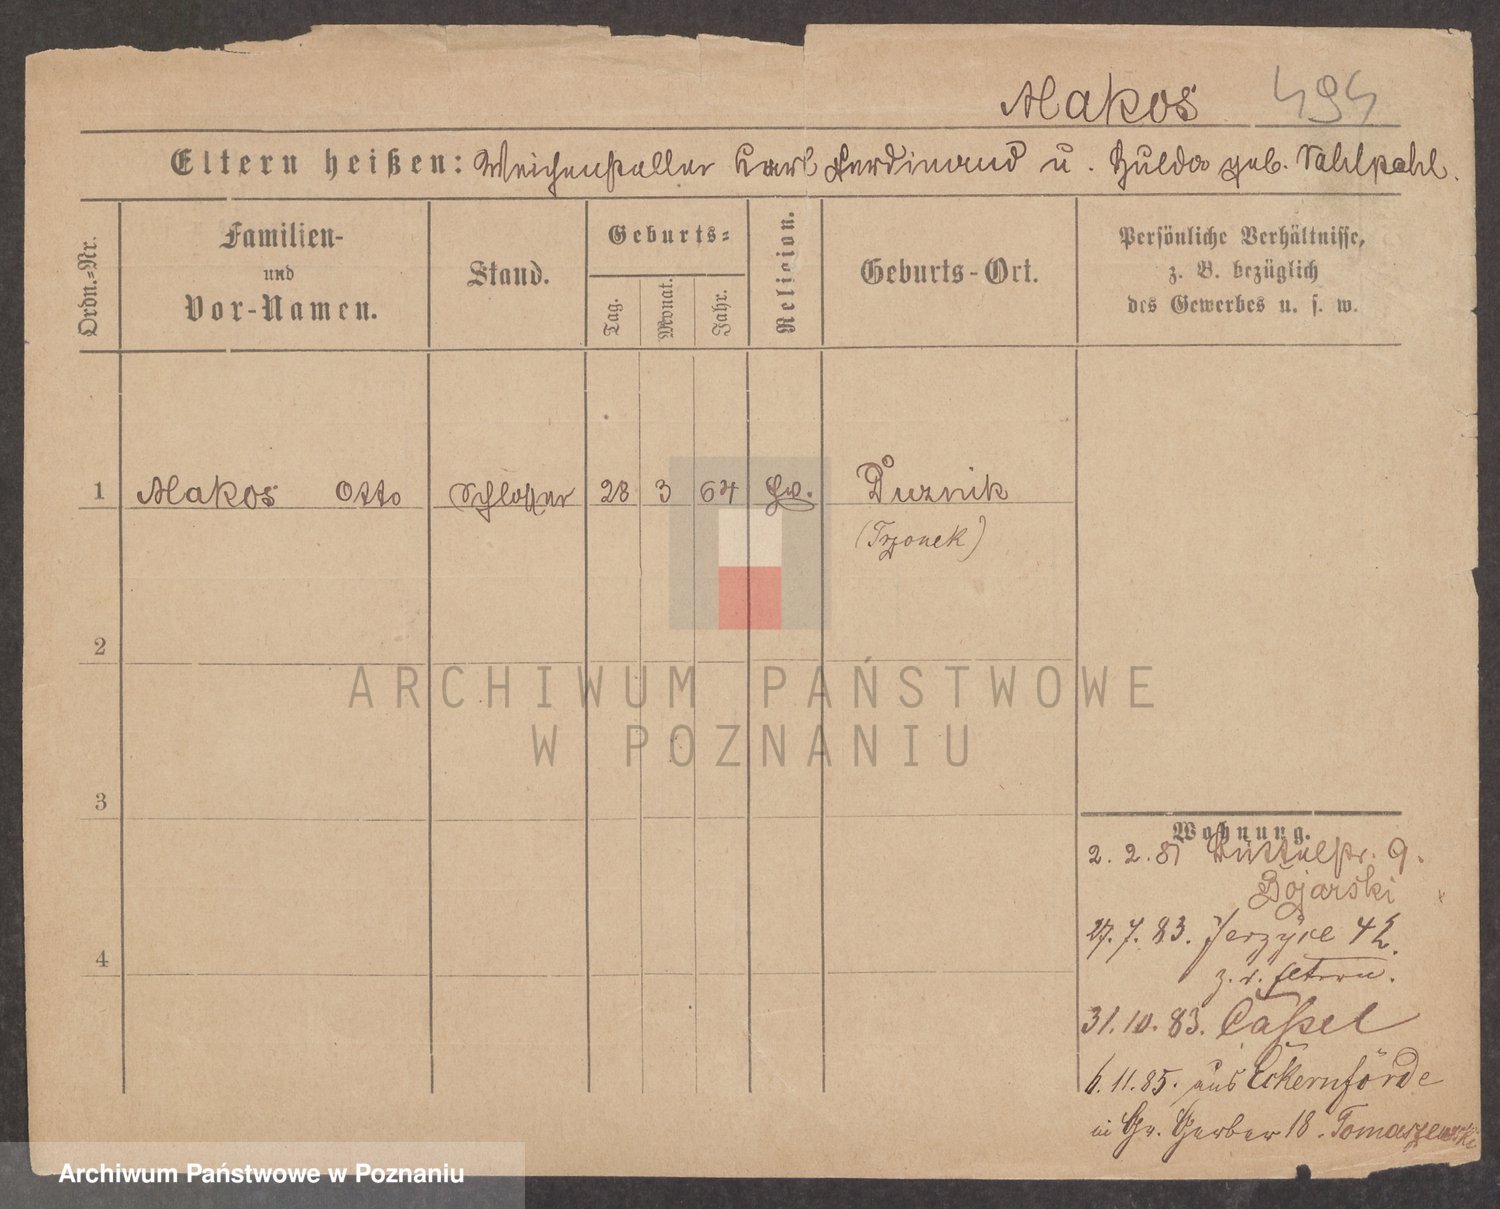 Makos 494
Eltern heißen: Weichensteller Karl Ferdinand u. Hulda geb.
Ordn.-Nr.
Familien-
und
Vor-Namen.
Stand.
Geburts-
Tag.
Monat.
Jahr.
Religion.
Geburts-Ort.
Persönliche Verhältnisse,
z. B. bezüglich
des Gewerbes u. s. w.
1 Makos Otto Schlosser 28 3 64 Ev. Dusznik
(Trzonek)
2
3
4
Wohnung.
2. 2. 81 9.
Bojarski
27. 7. 83. Jerzyce 42.
z. d. Eltern.
31. 10. 83. Cassel
6. 11. 85. aus Eckernförde
in Gr. Gerber 18. Tomaszewski
ARCHIWUM PAŃSTWOWE
W POZNANIU
Archiwum Państwowe w Poznaniu